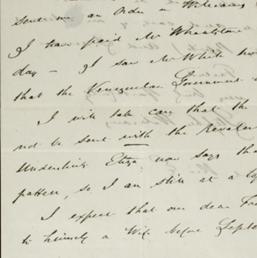 sent me an Order on Williams
I have paid Mr Wheatstone
day — I saw Mr White
that the Venezuelan Government
I will take care that the
not be sent with the Revolver
Underntine Eliza now says tha
pattern, so I am still at a
I expect that our dear
to himself a Wife before Septe